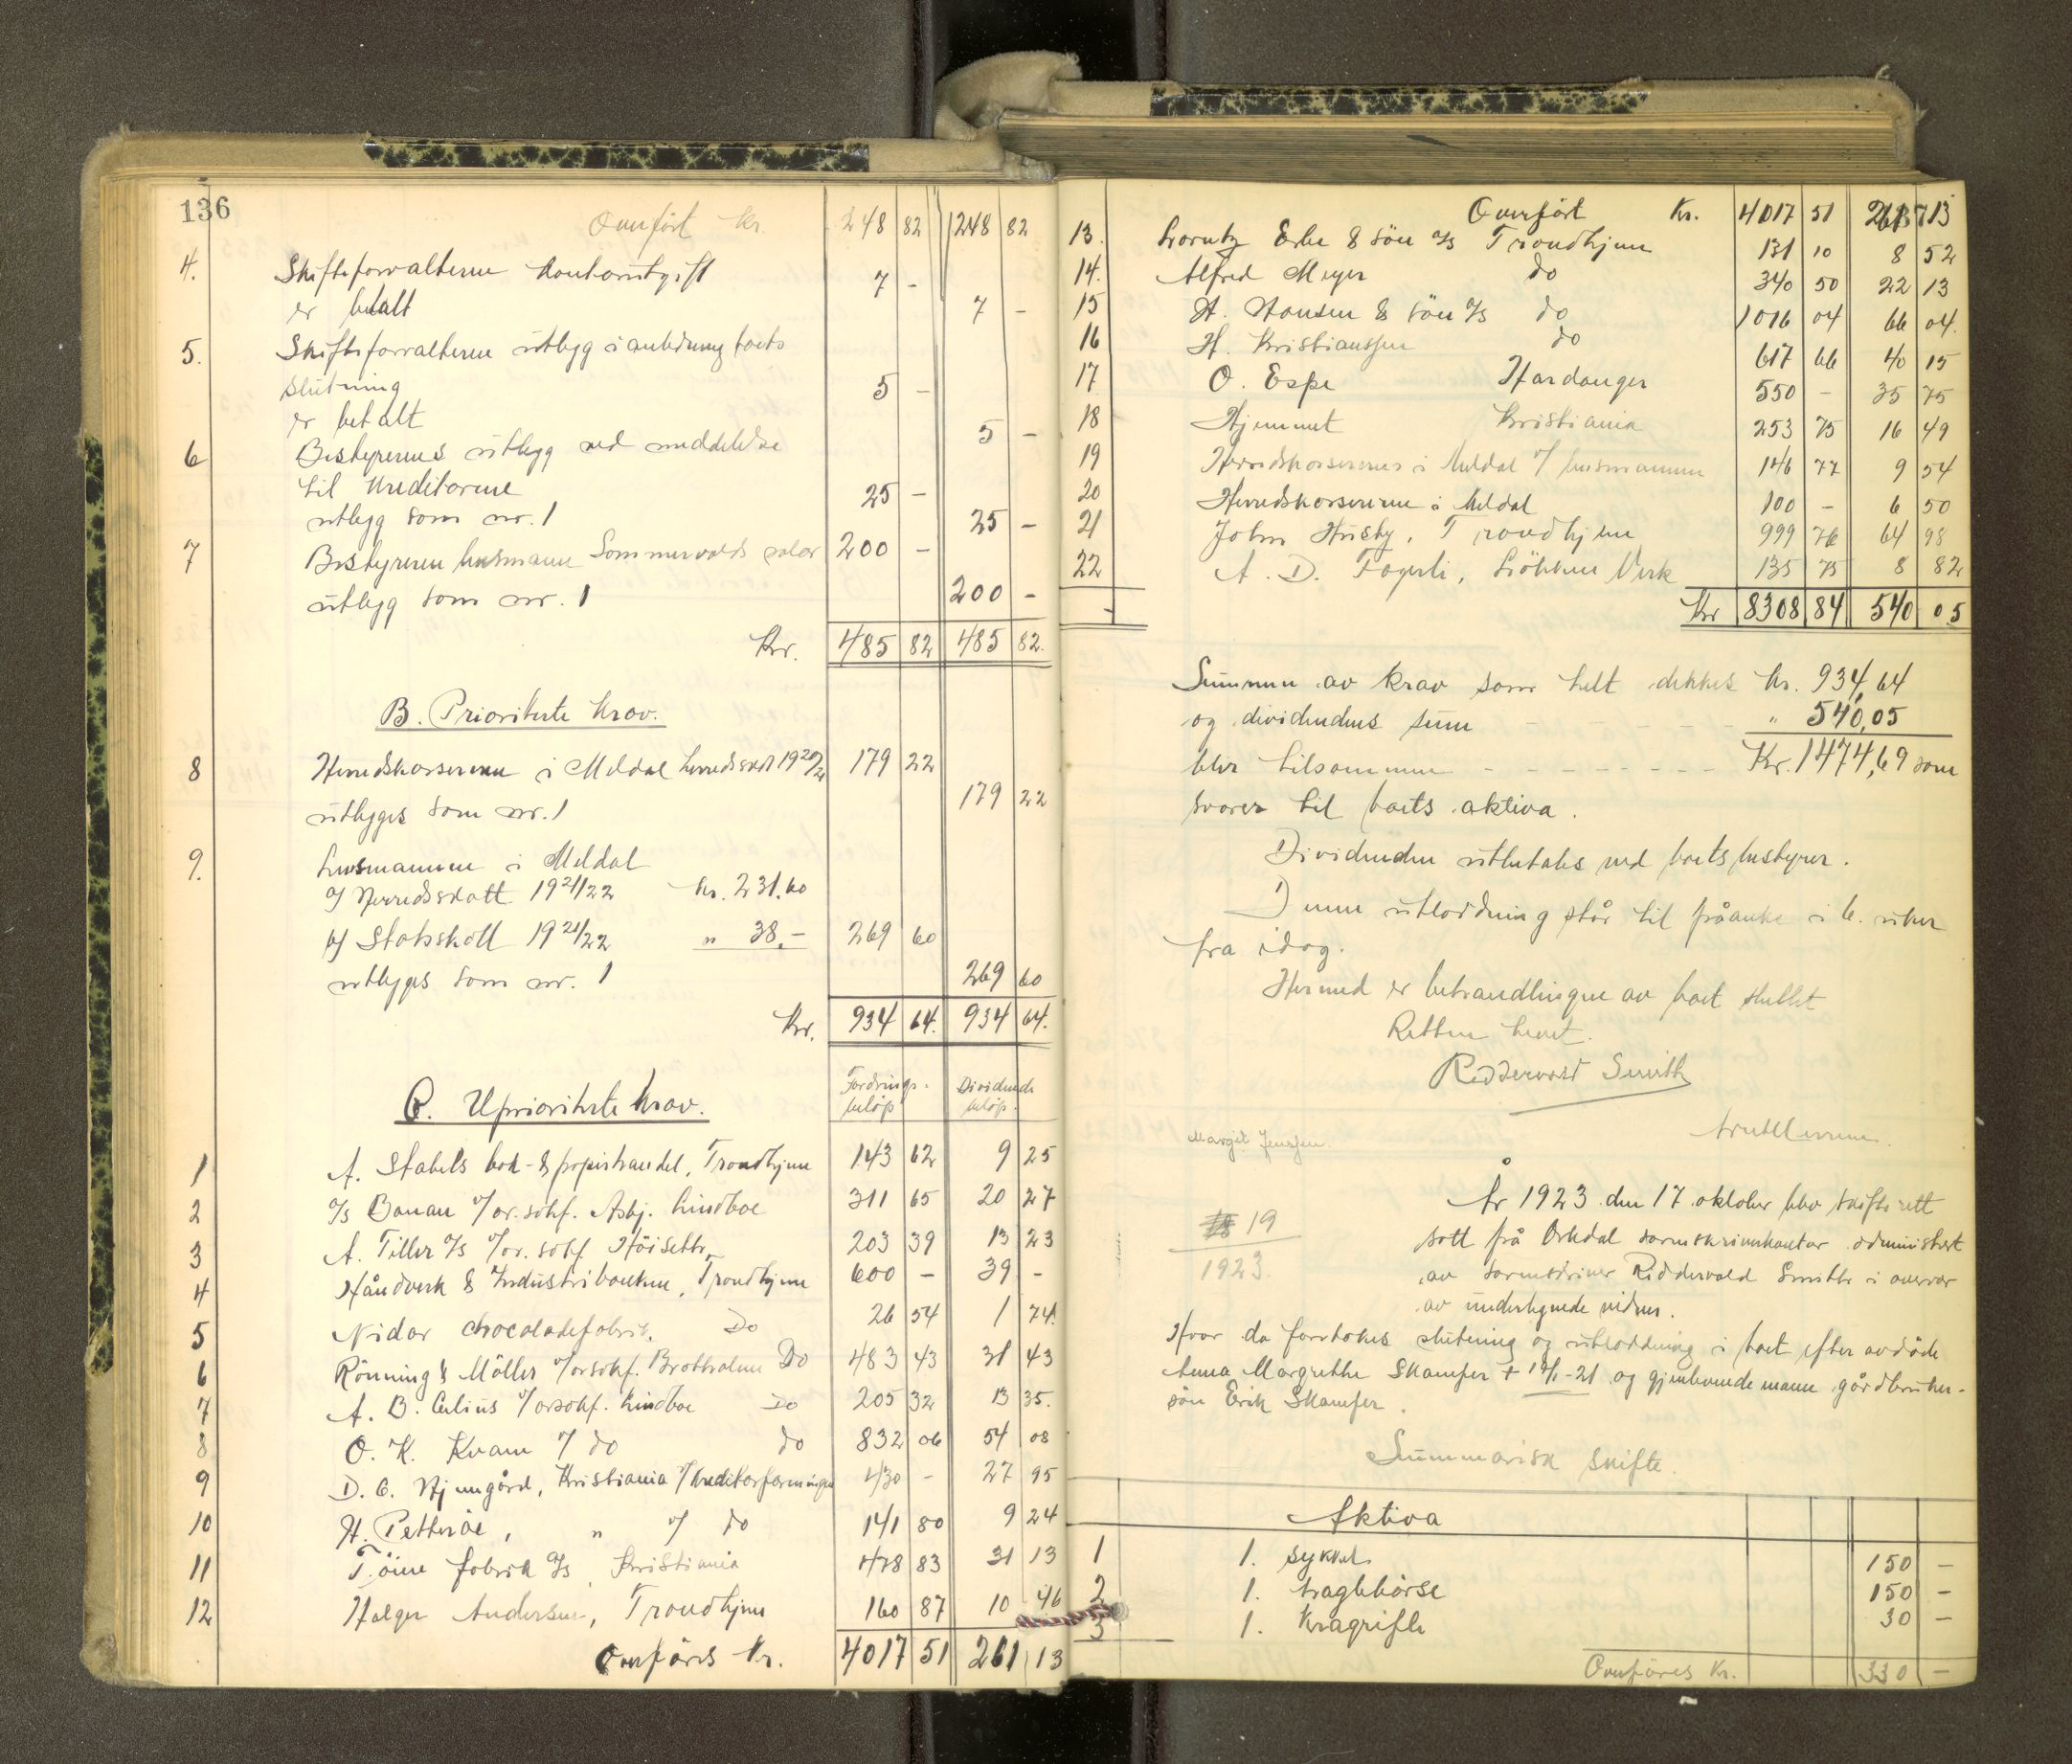 136
Overført Kr. 248 82 248 82
4. Skifteforvalterens kontorutgift 7 -
er betalt 7 -
5. Skifteforvalterens utlegg i anledning boets
slutning 5 -
er betalt 5 -
6 Bestyrerens utlegg ved meddelelse
til kreditorene 25 -
utlegg som nr. 1 25 -
7 Bestyreren lensmann Sommervolds salær 200 -
utlegg som nr. 1 200 -
Kr. 485 82 485 82.
B. Prioriterte krav.
8 Herredskassereren i Meldal herredsskatt 1920/21 179 22
utlegges som nr. 1 179 22
9. Lensmannen i Meldal
a/ Herredsskatt 1921/22 Kr. 231.60
b/ Statsskatt 1921/22 " 38.- 269 60
utlegges som nr. 1 269 60
Kr. 934 64. 934 64.
C. Uprioriterte krav. Fordrings- beløp Dividende beløp.
1 A. Stabels bok- & papirhandel, Trondhjem 143 62 9 25
2 A/s Banan v/or. sakf. Asbj. Lindboe 311 65 20 27
3 A. Tiller A/s v/or. sakf. Høiseth 203 39 13 23
4 Håndverk & Industribanken, Trondhjem 600 - 39 -
5 Nidar chocoladefabrik. Do 26 54 1 74
6 Rönning & Möller v/orsakf. Brotholm Do 483 43 31 43
7 A. B. Celius v/orsakf. Lindboe Do 205 32 13 35.
8 O. K. Kvam v/ do do 832 06 54 08
9 D. C. Hjemgård, Kristiania v/Kreditorforeningen 430 - 27 95
10 H. Petterøe, " v/ do 141 80 9 24
11 Töien fabrik A/s, Kristiania 478 83 31 13
12 Holger Andersen, Trondhjem 160 87 10 46
Overføres Kr. 4017 51 261 13
Overført Kr. 4017 51 261 13
13. Lorentz Erbe & Sön A/s Trondhjem 131 10 8 52
14. Alfred Meyer do 340 50 22 13
15 H. Hansen & Sön A/s do 1016 04 66 04.
16 H. Kristianssen do 617 66 40 15
17 O. Espe Hardanger 550 - 35 75
18 Hjemmet Kristiania 253 75 16 49
19 Herredskassereren i Meldal v/ lensmannen 146 77 9 54
20 Herredskassereren i Meldal 100 - 6 50
21 John Husby, Trondhjem 999 76 64 98
22 A. D. Fagerli, Lökken Verk 135 75 8 82
Kr 8308 84 540 05
Summen av krav som helt dekkes kr. 934,64
og dividendens sum - - - - " 540,05
blir tilsammen - - - - - - - - Kr. 1474,69 som
svarer til boets aktiva.
Dividenden utbetales ved boets bestyrer.
Denne utlodning står til påanke i 6. uker
fra idag.
Hermed er behandlingen av boet sluttet
Retten hevet.
Riddervold Smith
Margit Jenssen.
19
1923.
År 1923 den 17 oktober blev skifterett
satt på Orkdal sorenskriverkontor administrert
av sorenskriver Riddervold Smith i overvær
av undertegnede vidner.
Hvor da foretokes slutning og utlodning i boet efter avdöde
Anna Margrethe Skamfer + 14/1-21 og gjenlevende mann gårdbruker-
sön Erik Skamfer.
Summarisk skifte.
Aktiva
1 1. sykkel 150 -
2 1. haglebörse 150 -
3 1. Kragrifle 30 -
Overføres Kr. 330 -